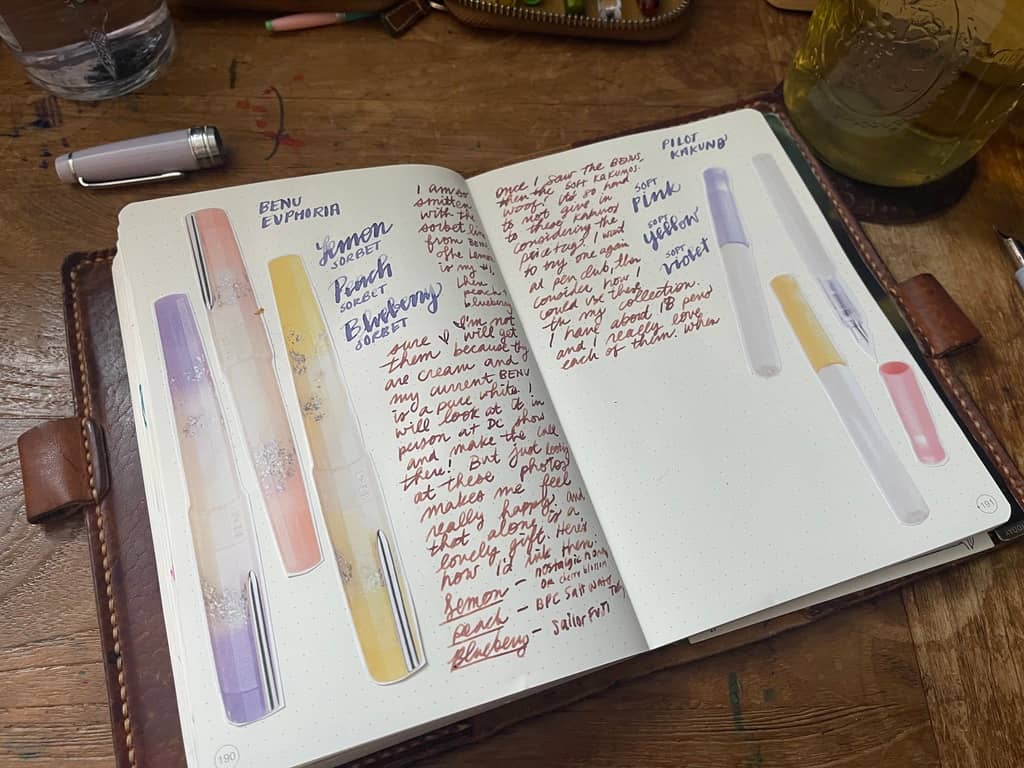 BENU
EUPHORIA
Lemon
SORBET
Peach
SORBET
Blueberry
SORBET
I am so
smitten
with the
sorbet line
from BENU
the Lemon
is my #1,
then
peach,
blueberry
I'm not
sure will get
them because they
are cream and
my current BENU
is a pure white. I
will look at it in
person at DC show
and make the call
there! But just looking
at these photos
makes me feel
really happy and
that alone is a
lovely gift. Here's
how I'd ink them:
Lemon - nostalgic honey
OR cherry blossom
peach - BPC Salt Water Taffy
Blueberry - Sailor Fuji
190
PILOT
KAKUNO
once I saw the BENUs,
then the soft KAKUNOS.
woof. it's so hard
to not give in
to these kakuno
considering the
price tag. I want
to try one again
at pen club, then
consider how I
could use these
in my collection.
I have about 18 pens
and I really love
each of them. when
SOFT
Pink
SOFT
Yellow
SOFT
Violet
191